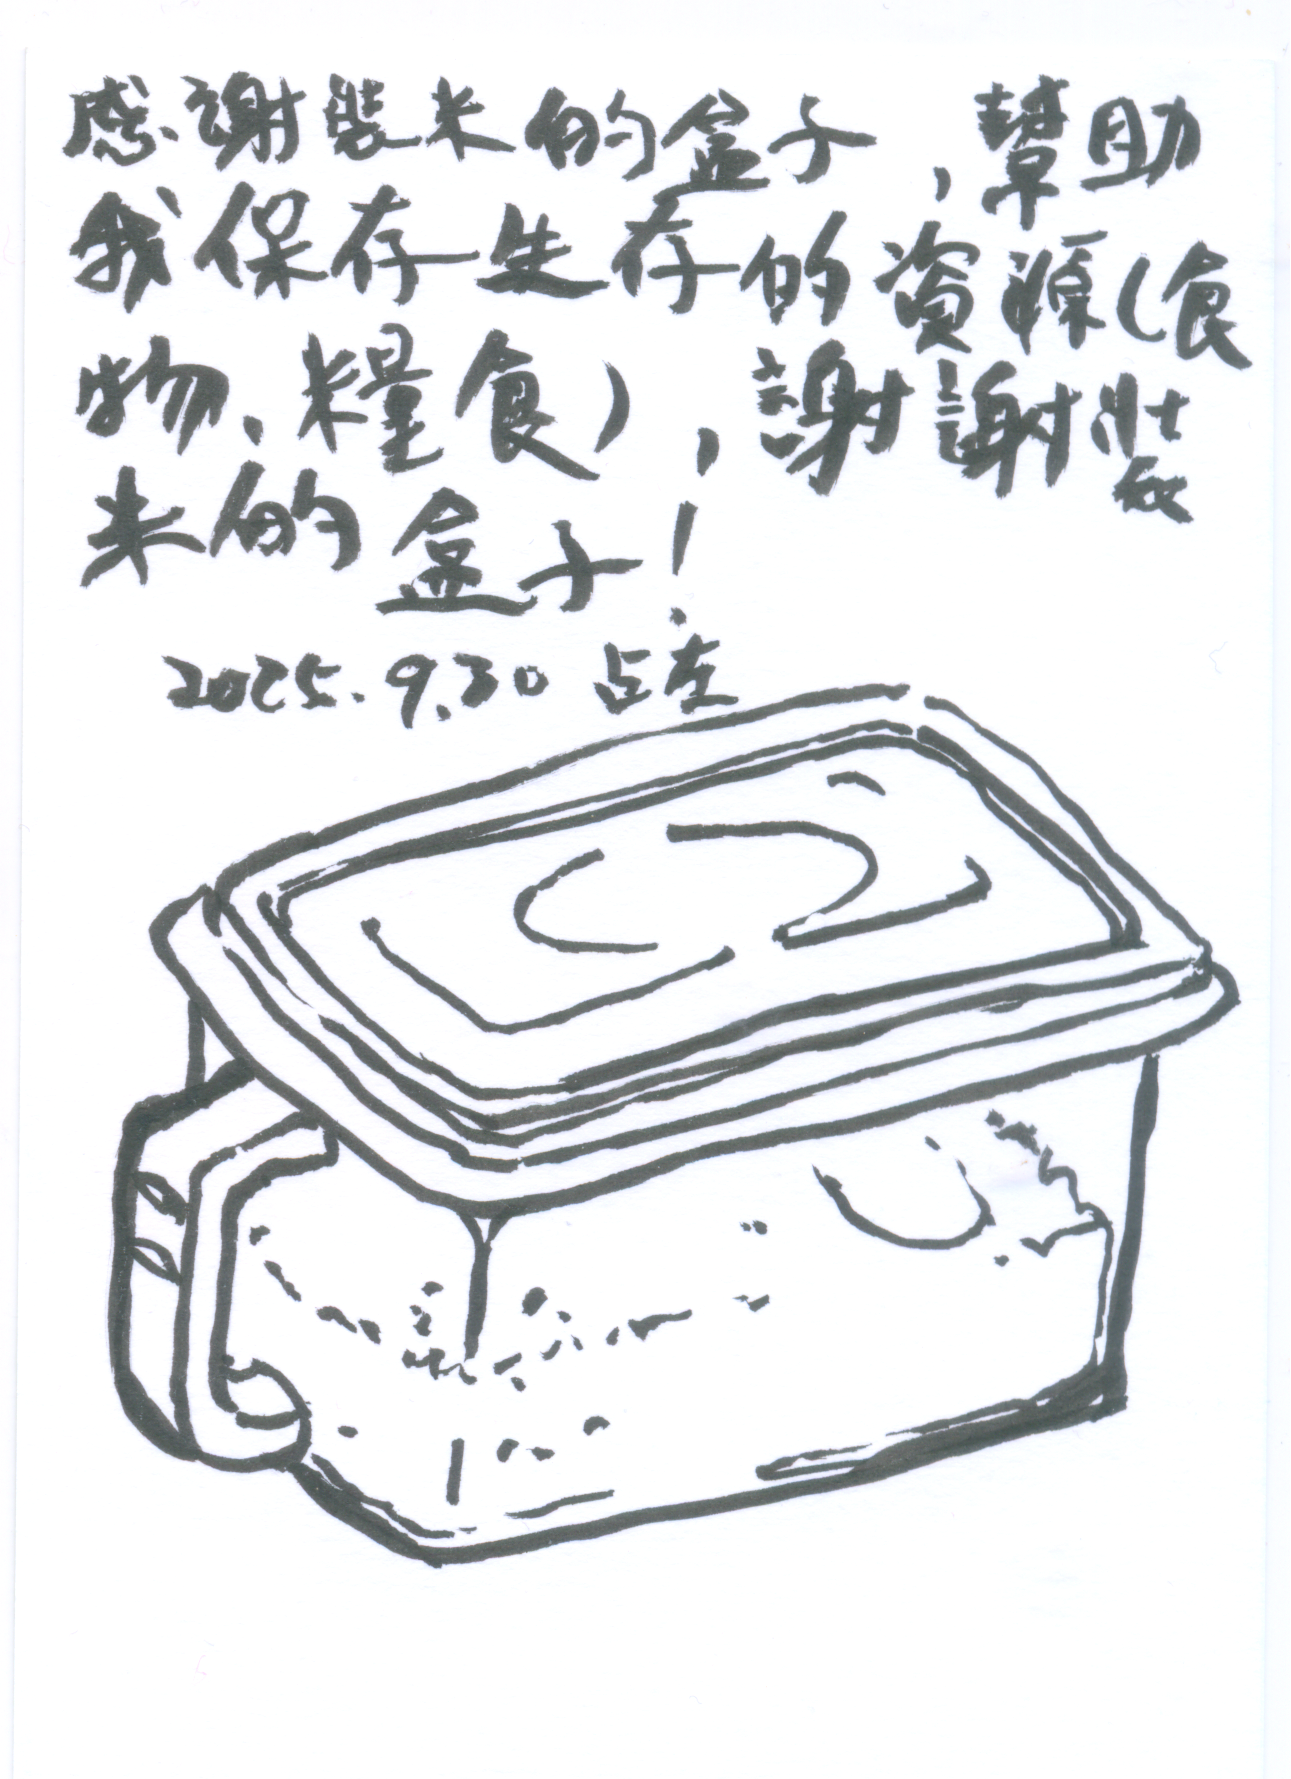 感謝裝米的盒子，幫助
我保存生存的資源（食
物、糧食），謝謝裝
米的盒子！
2025.9.30 占左